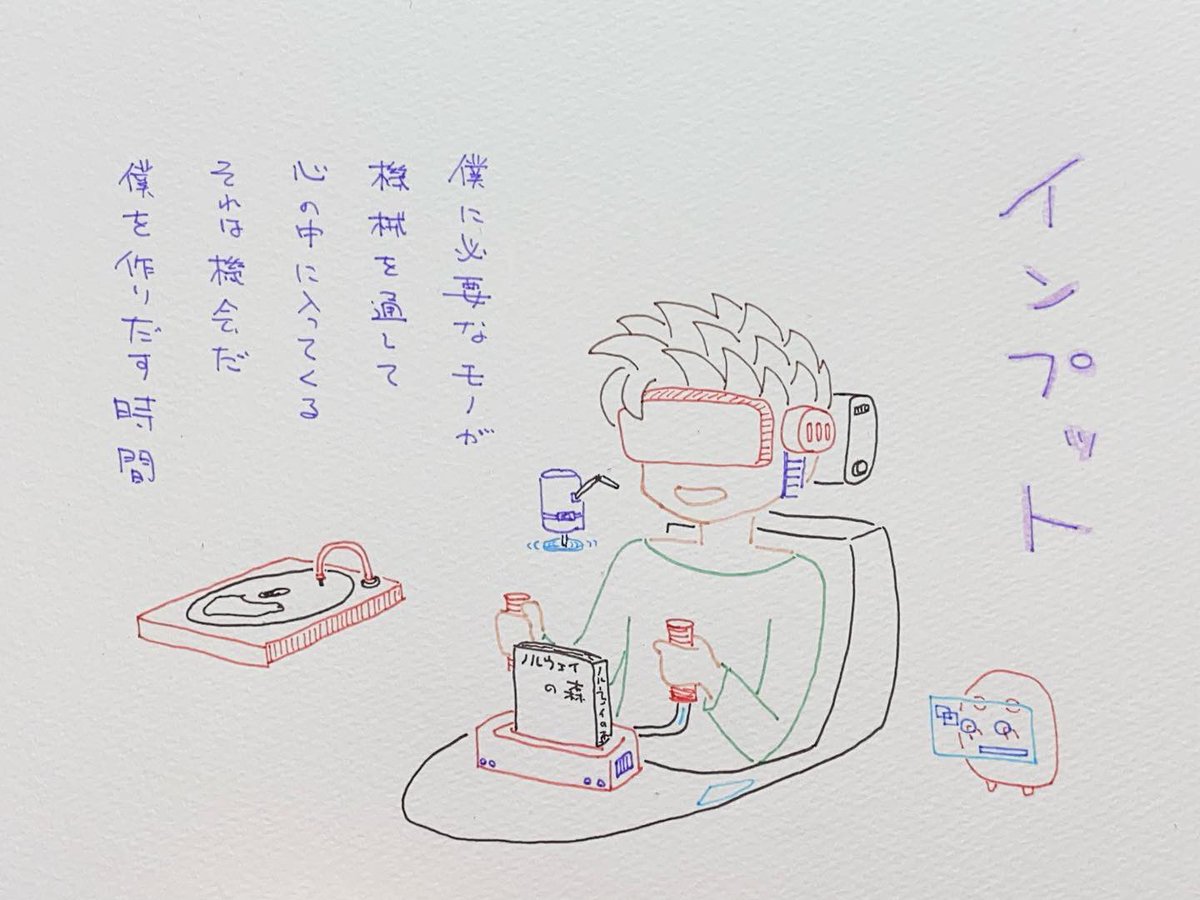 インプット
僕に必要なモノが
機械を通して
心の中に入ってくる
それは機会だ
僕を作りだす時間
ノルウェイ
の森
ノルウェイの森